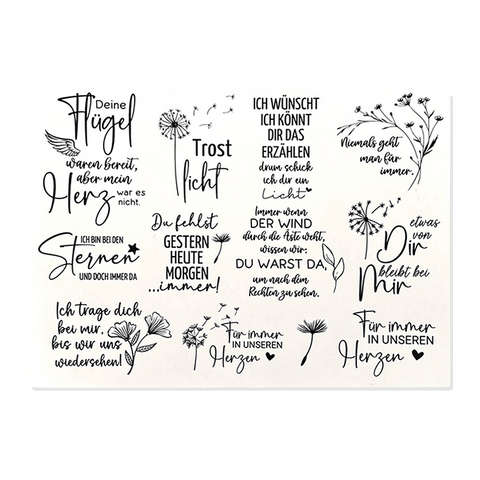 Deine
Flügel
waren bereit,
aber mein
Herz war es
nicht.
Trost
licht
ICH WÜNSCHT
ICH KÖNNT
DIR DAS
ERZÄHLEN
drum schick
ich dir ein
Licht
Niemals geht
man für
immer.
ICH BIN BEI DEN
Sternen
UND DOCH IMMER DA
Du fehlst
GESTERN
HEUTE
MORGEN
...immer!
Immer wenn
DER WIND
durch die Äste weht,
wissen wir:
DU WARST DA,
um nach dem
Rechten zu sehen.
etwas
von
Dir
bleibt bei
Mir
Ich trage dich
bei mir,
bis wir uns
wiedersehen!
Für immer
IN UNSEREN
Herzen
Für immer
IN UNSEREN
Herzen